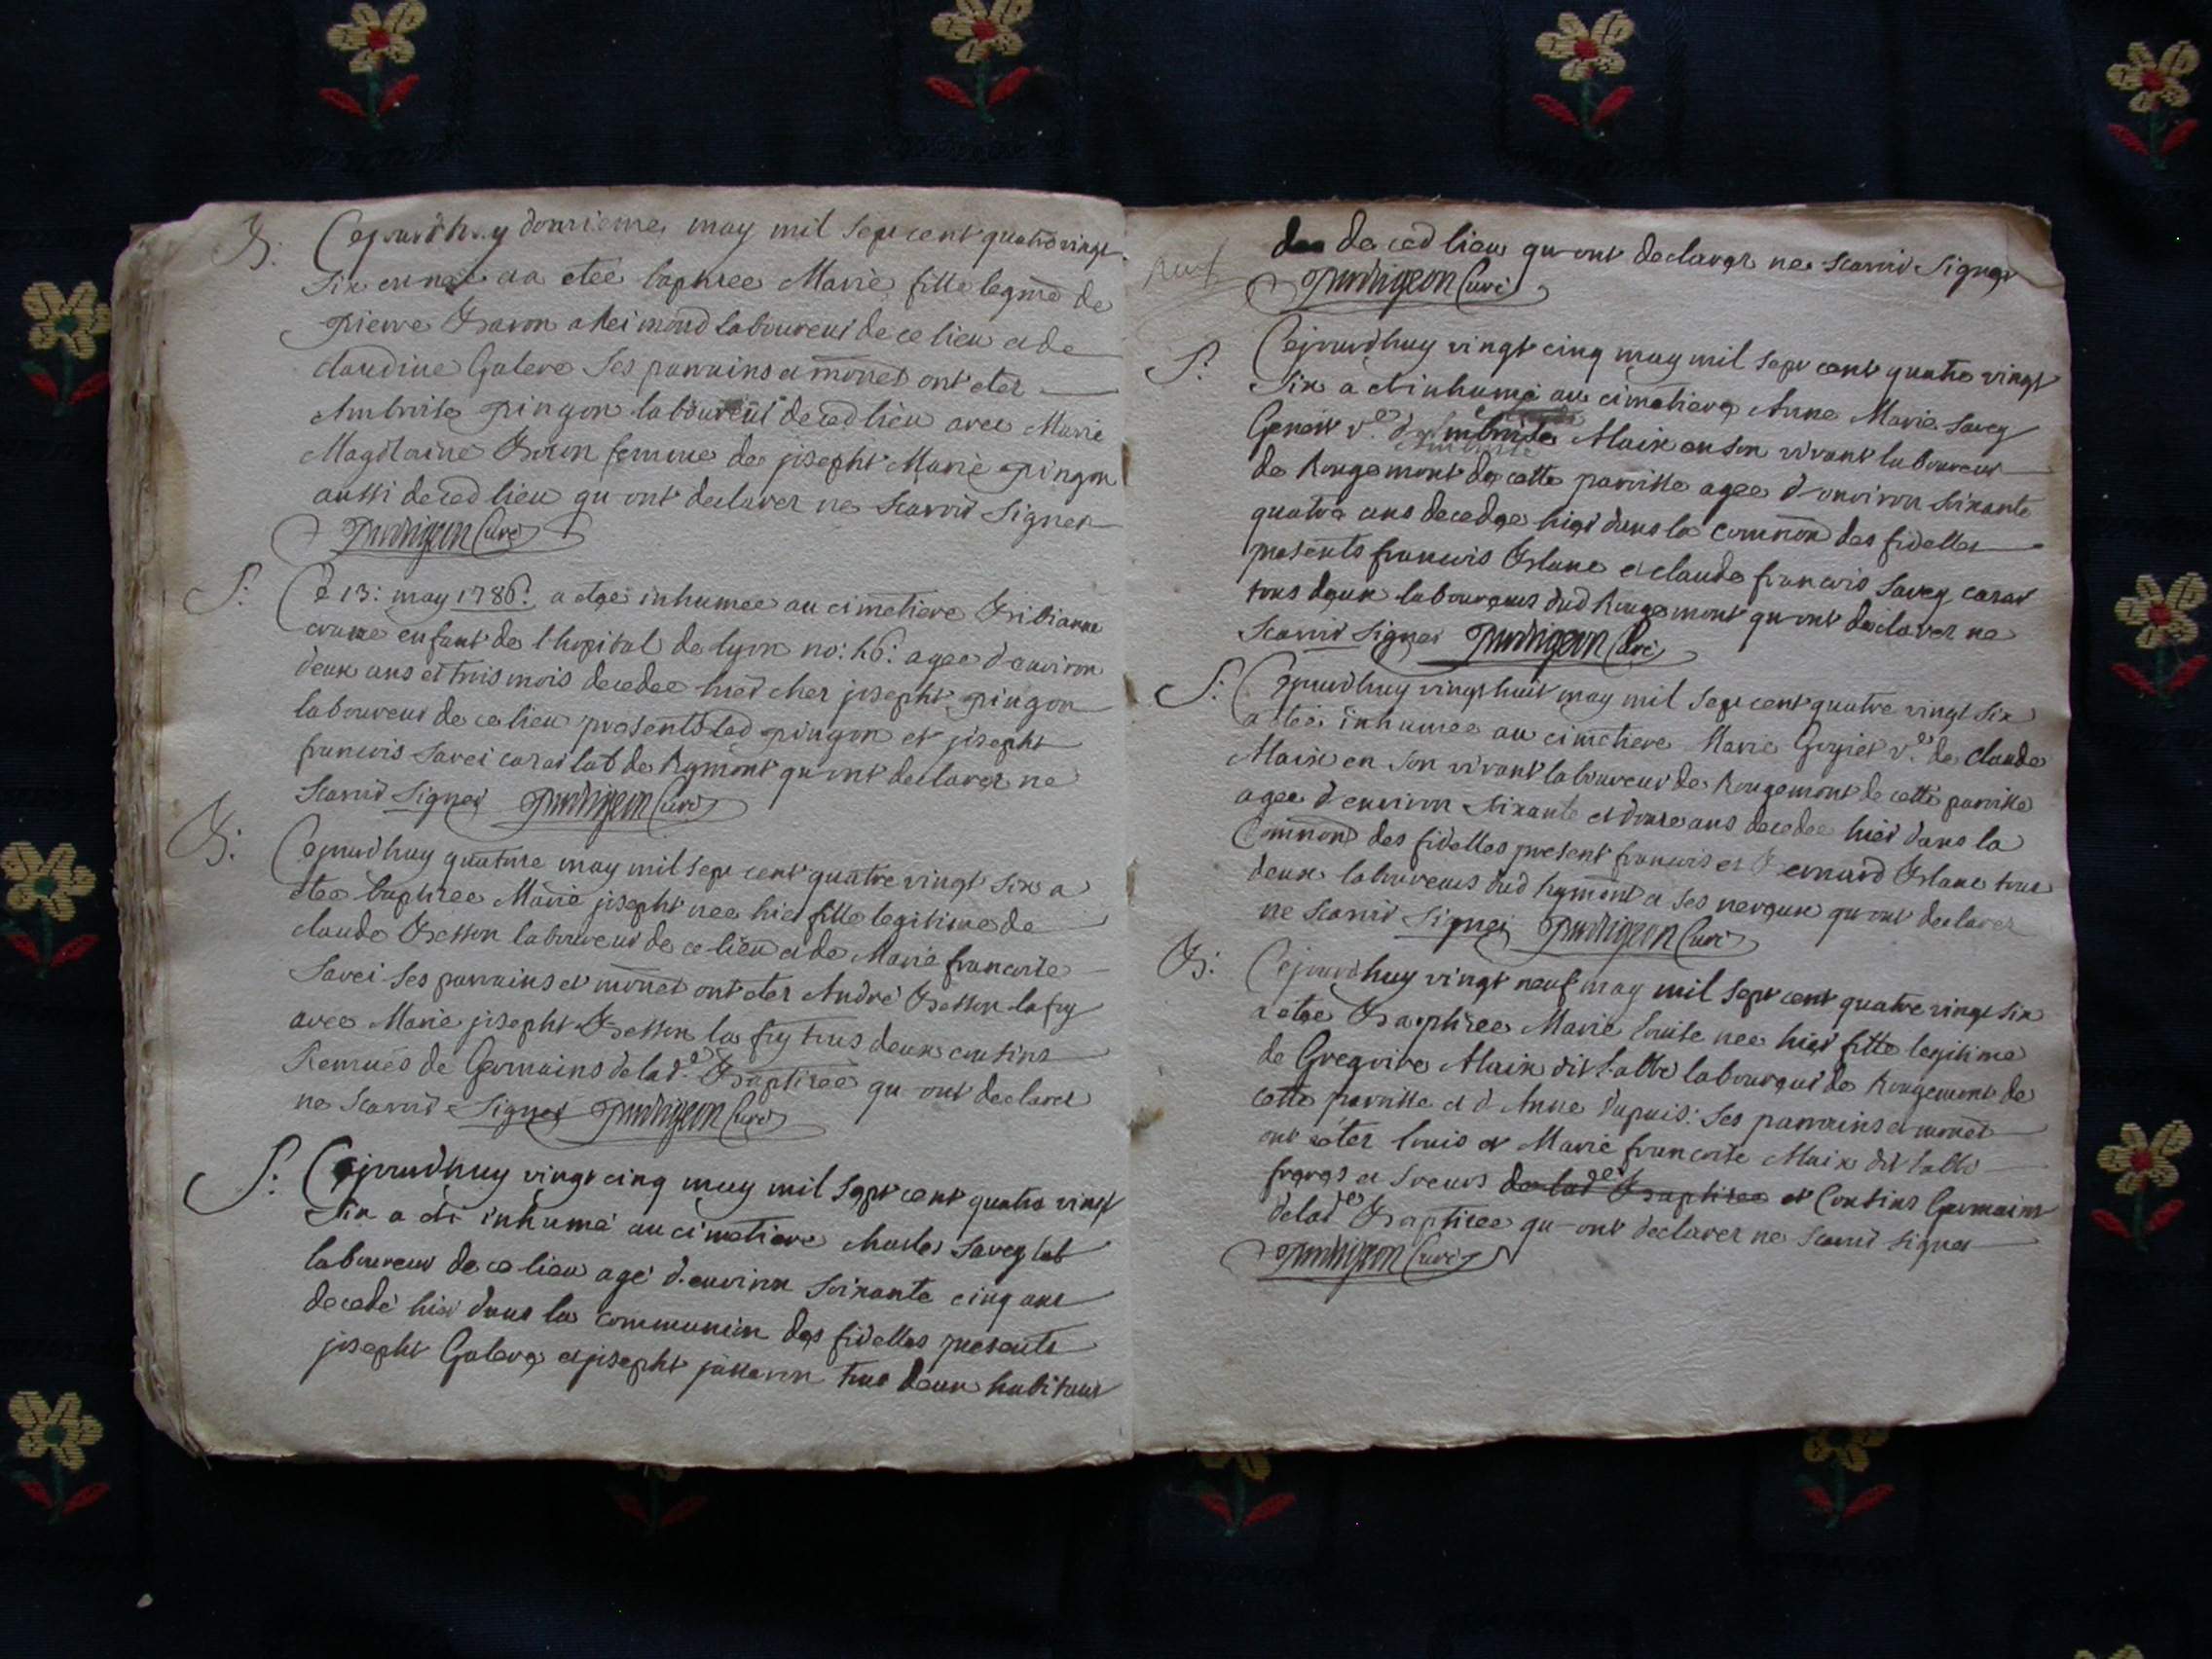 B. Cejourdhuy douzieme may mil sept cent quatre vingt
six est née et a etée baptizee Marie fille legme de
pierre Baron a Reimond laboureur de ce lieu et de
claudine Galere Ses parrains et mones ont eter
Ambroise pingon laboureur de ced lieu avec Marie
Magdlaine femme de josepht Marie pingon
aussi de ced lieu qu ont declarer ne scavoir signer
curé
S. Ce 13: may 1786: a eteé inhumee au cimetiere Bibianne
enfant de l hopital de lyon no: 46: agee d environ
deux ans et trois mois decedee hier cher josepht pingon
laboureur de ce lieu presents led pingon et josepht
francois Savei lab de Rgmont qu ont declarer ne
Scavoir Signer curé
B. Cejourdhuy quatorze may mil sept cent quatre vingt six a
etee baptizee Marie josepht nee hier fille legitime de
claude Besson laboureur de ce lieu et de Marie francoise
Savei Ses parrains et mones ont eter André Besson lafry
avec Marie josepht Besson la fry tous deux cousins
Remués de Germains de lad.e Baptizée qu ont declarer
ne scavoir Signer curé
S. Cejourdhuy vingt cinq may mil sept cent quatre vingt
six a eté inhumé au cimetiere charles Savey lab
laboureur de ce lieu agé d environ soixante cinq ans
decedé hier dans la communion des fidelles presents
josepht Galere et josepht tous deux habitans
de ced lieu qu ont declarer ne scavoir signer
curé
S. Cejourdhuy vingt cinq may mil sept cent quatre vingt
six a eté inhumé au cimetiere Anne Marie Savey
Genest v.e d'Ambroise Alaix en son vivant laboureur
de Rougemont de cette paroisse agee d environ soixante
quatre ans decedee hier dans la commnon des fidelles
presents francois Blanc et claude francois Savey
tous deux laboureurs dud Rougemont qu ont declarer ne
Scavoir signer curé
S. Cejourdhuy vingt huit may mil sept cent quatre vingt six
a eteé inhumee au cimetiere Marie v.e de claude
Alaix en son vivant laboureur de Rougemont de cette paroisse
agee d environ soixante et douze ans decedee hier dans la
Commnon des fidelles present francois et Bernard Blanc tous
deux laboureurs dud Rgmont et ses neveux qu ont declarer
ne scavoir signer curé
B. Cejourdhuy vingt neuf may mil sept cent quatre vingt six
a etée Baptizee Marie louise nee hier fille legitime
de Gregoire Alaix dit laboureur de Rougemont de
cette paroisse et d Anne Dupuis: Ses parrains et mones
ont eter louis et Marie francoise Alaix dit
freres et soeurs de lad.e Baptizee et Cousins Germains
de lad.e Baptizee qu ont declarer ne scavoir signer
curé